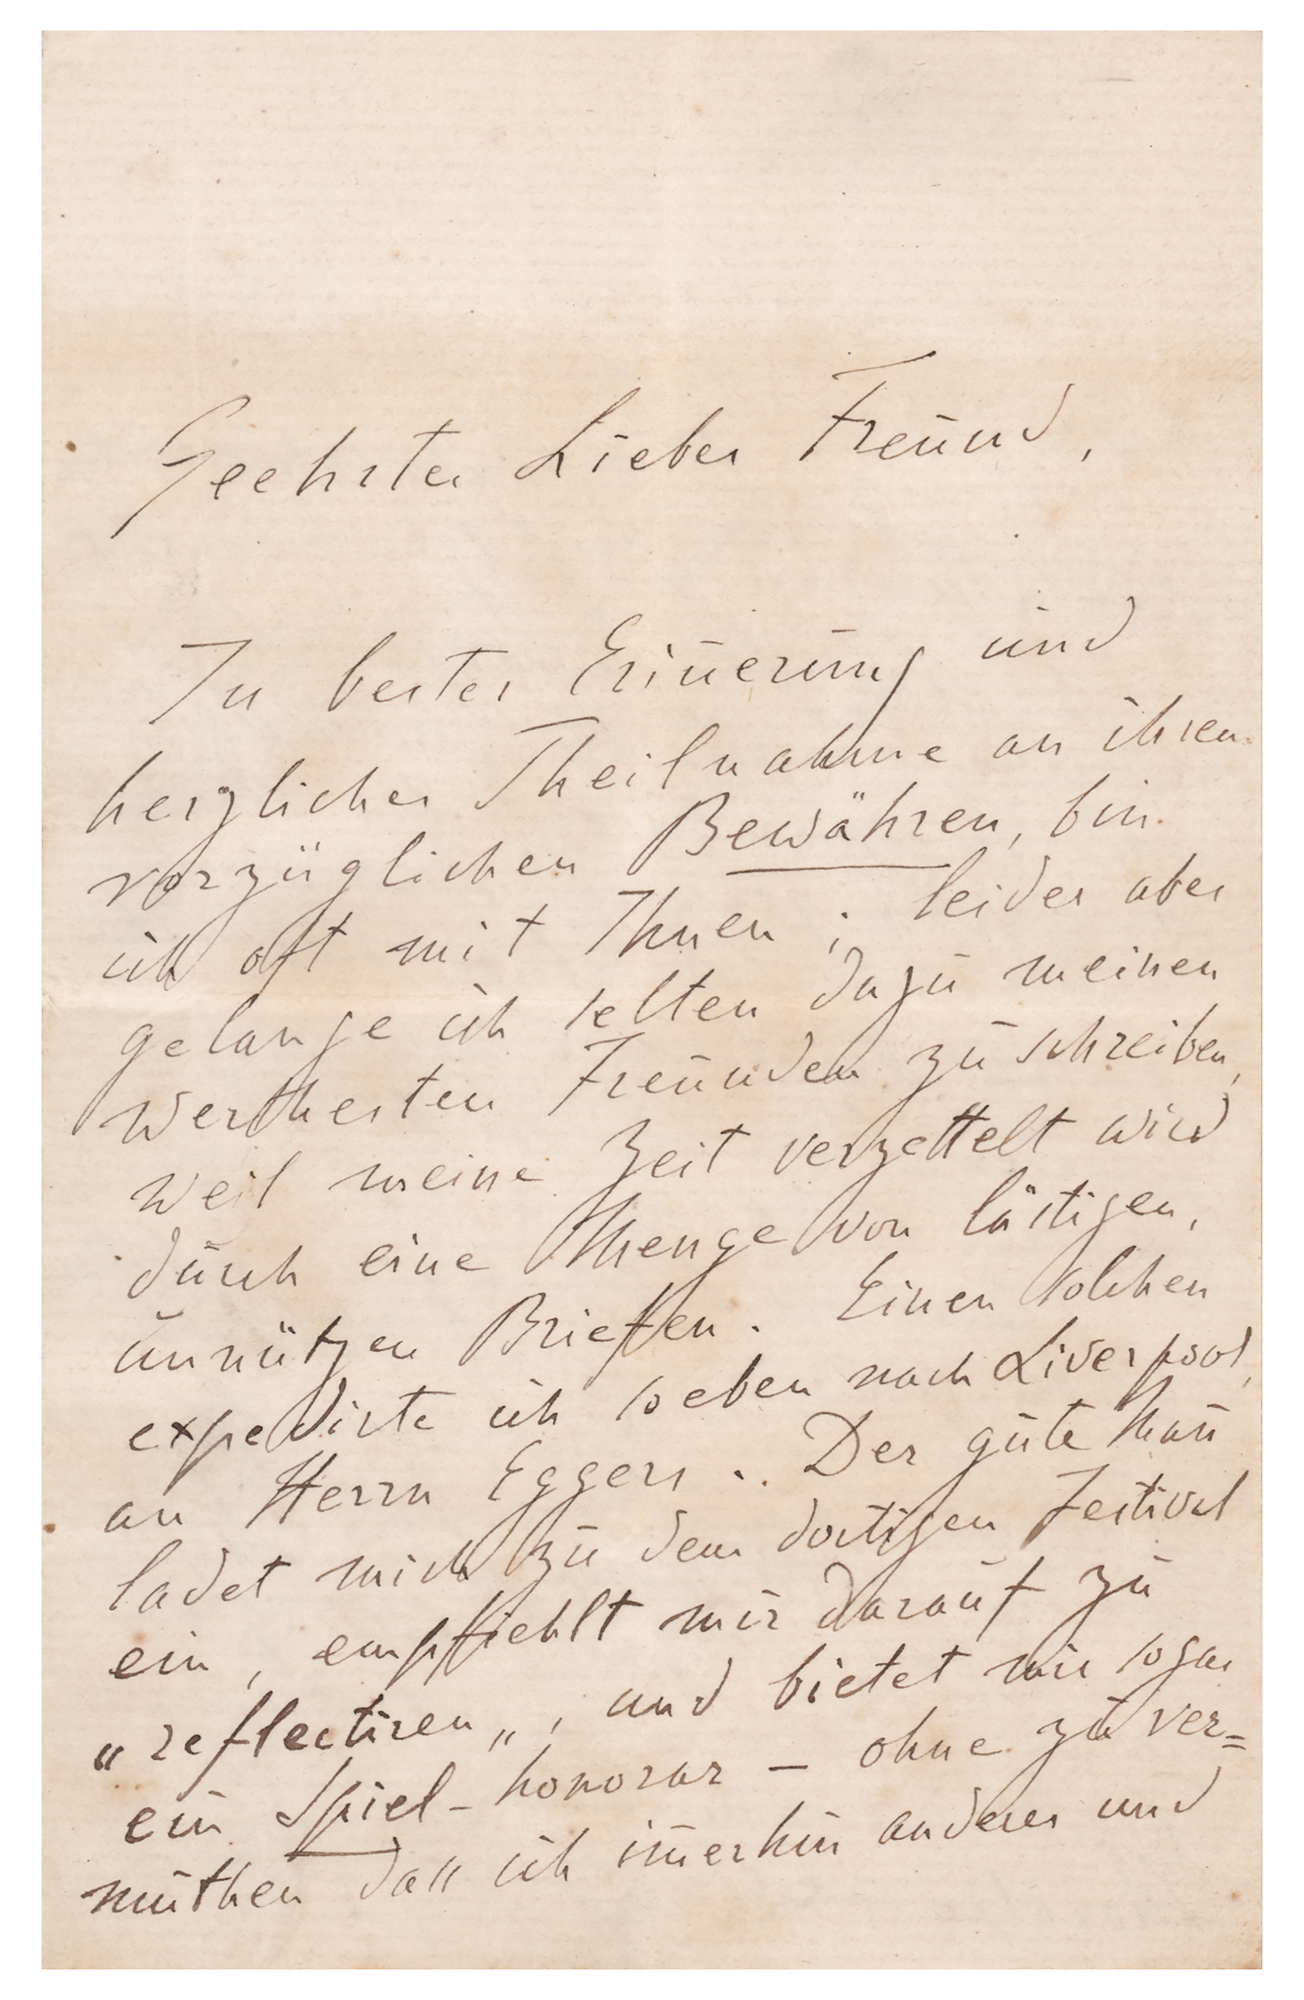 Geehrter Lieber Freund,
In bester Erin̄erung und
herzlicher Theilnahme an ihren
vorzüglichen Bewähren, bin
ich oft mit Ihnen; leider aber
gelange ich selten dazu meinen
werthesten Freunden zu schreiben,
weil meine Zeit verzettelt wird
durch eine Menge von lästigen,
unnützen Briefen. Einen solchen
expedirte ich soeben nach Liverpool,
an Herrn Eggers.. Der gute Man̄
ladet mich zu dem dortigen Festival
ein, empfiehlt mir darauf zu
„reflectiren„, und bietet mir sogar
ein Spiel-honorar – ohne zu ver=
muthen dass ich im̄erhin anderes und